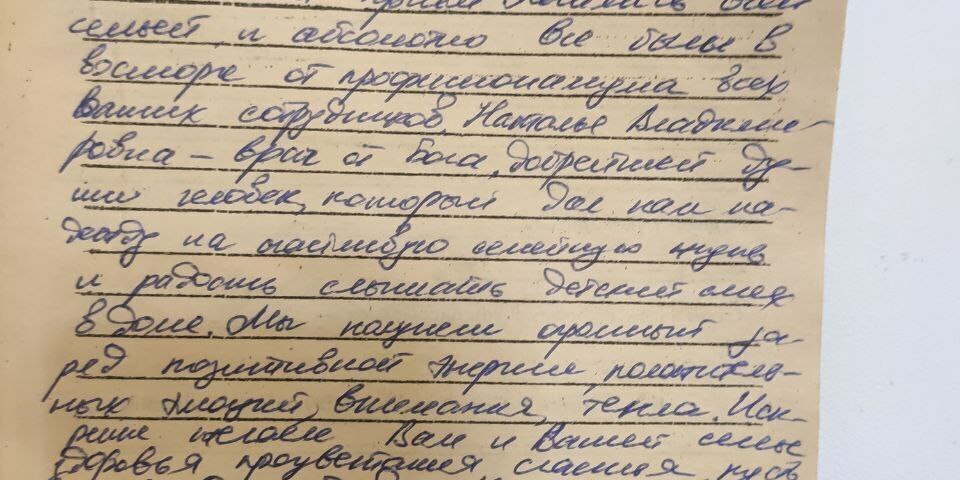 семьей, и абсолютно все были в
восторге от профессионализма всех
ваших сотрудников. Наталья Владими-
ровна - врач от Бога, добрейшей ду-
ши человек, который дал нам на-
дежду на счастливую семейную жизнь
и радость слышать детский смех
в доме. Мы получили огромный за-
ряд позитивной энергии, положитель-
ных эмоций, внимания, тепла. Иск-
ренне желаем Вам и Вашей семье
здоровья, процветания, счастья, пусть